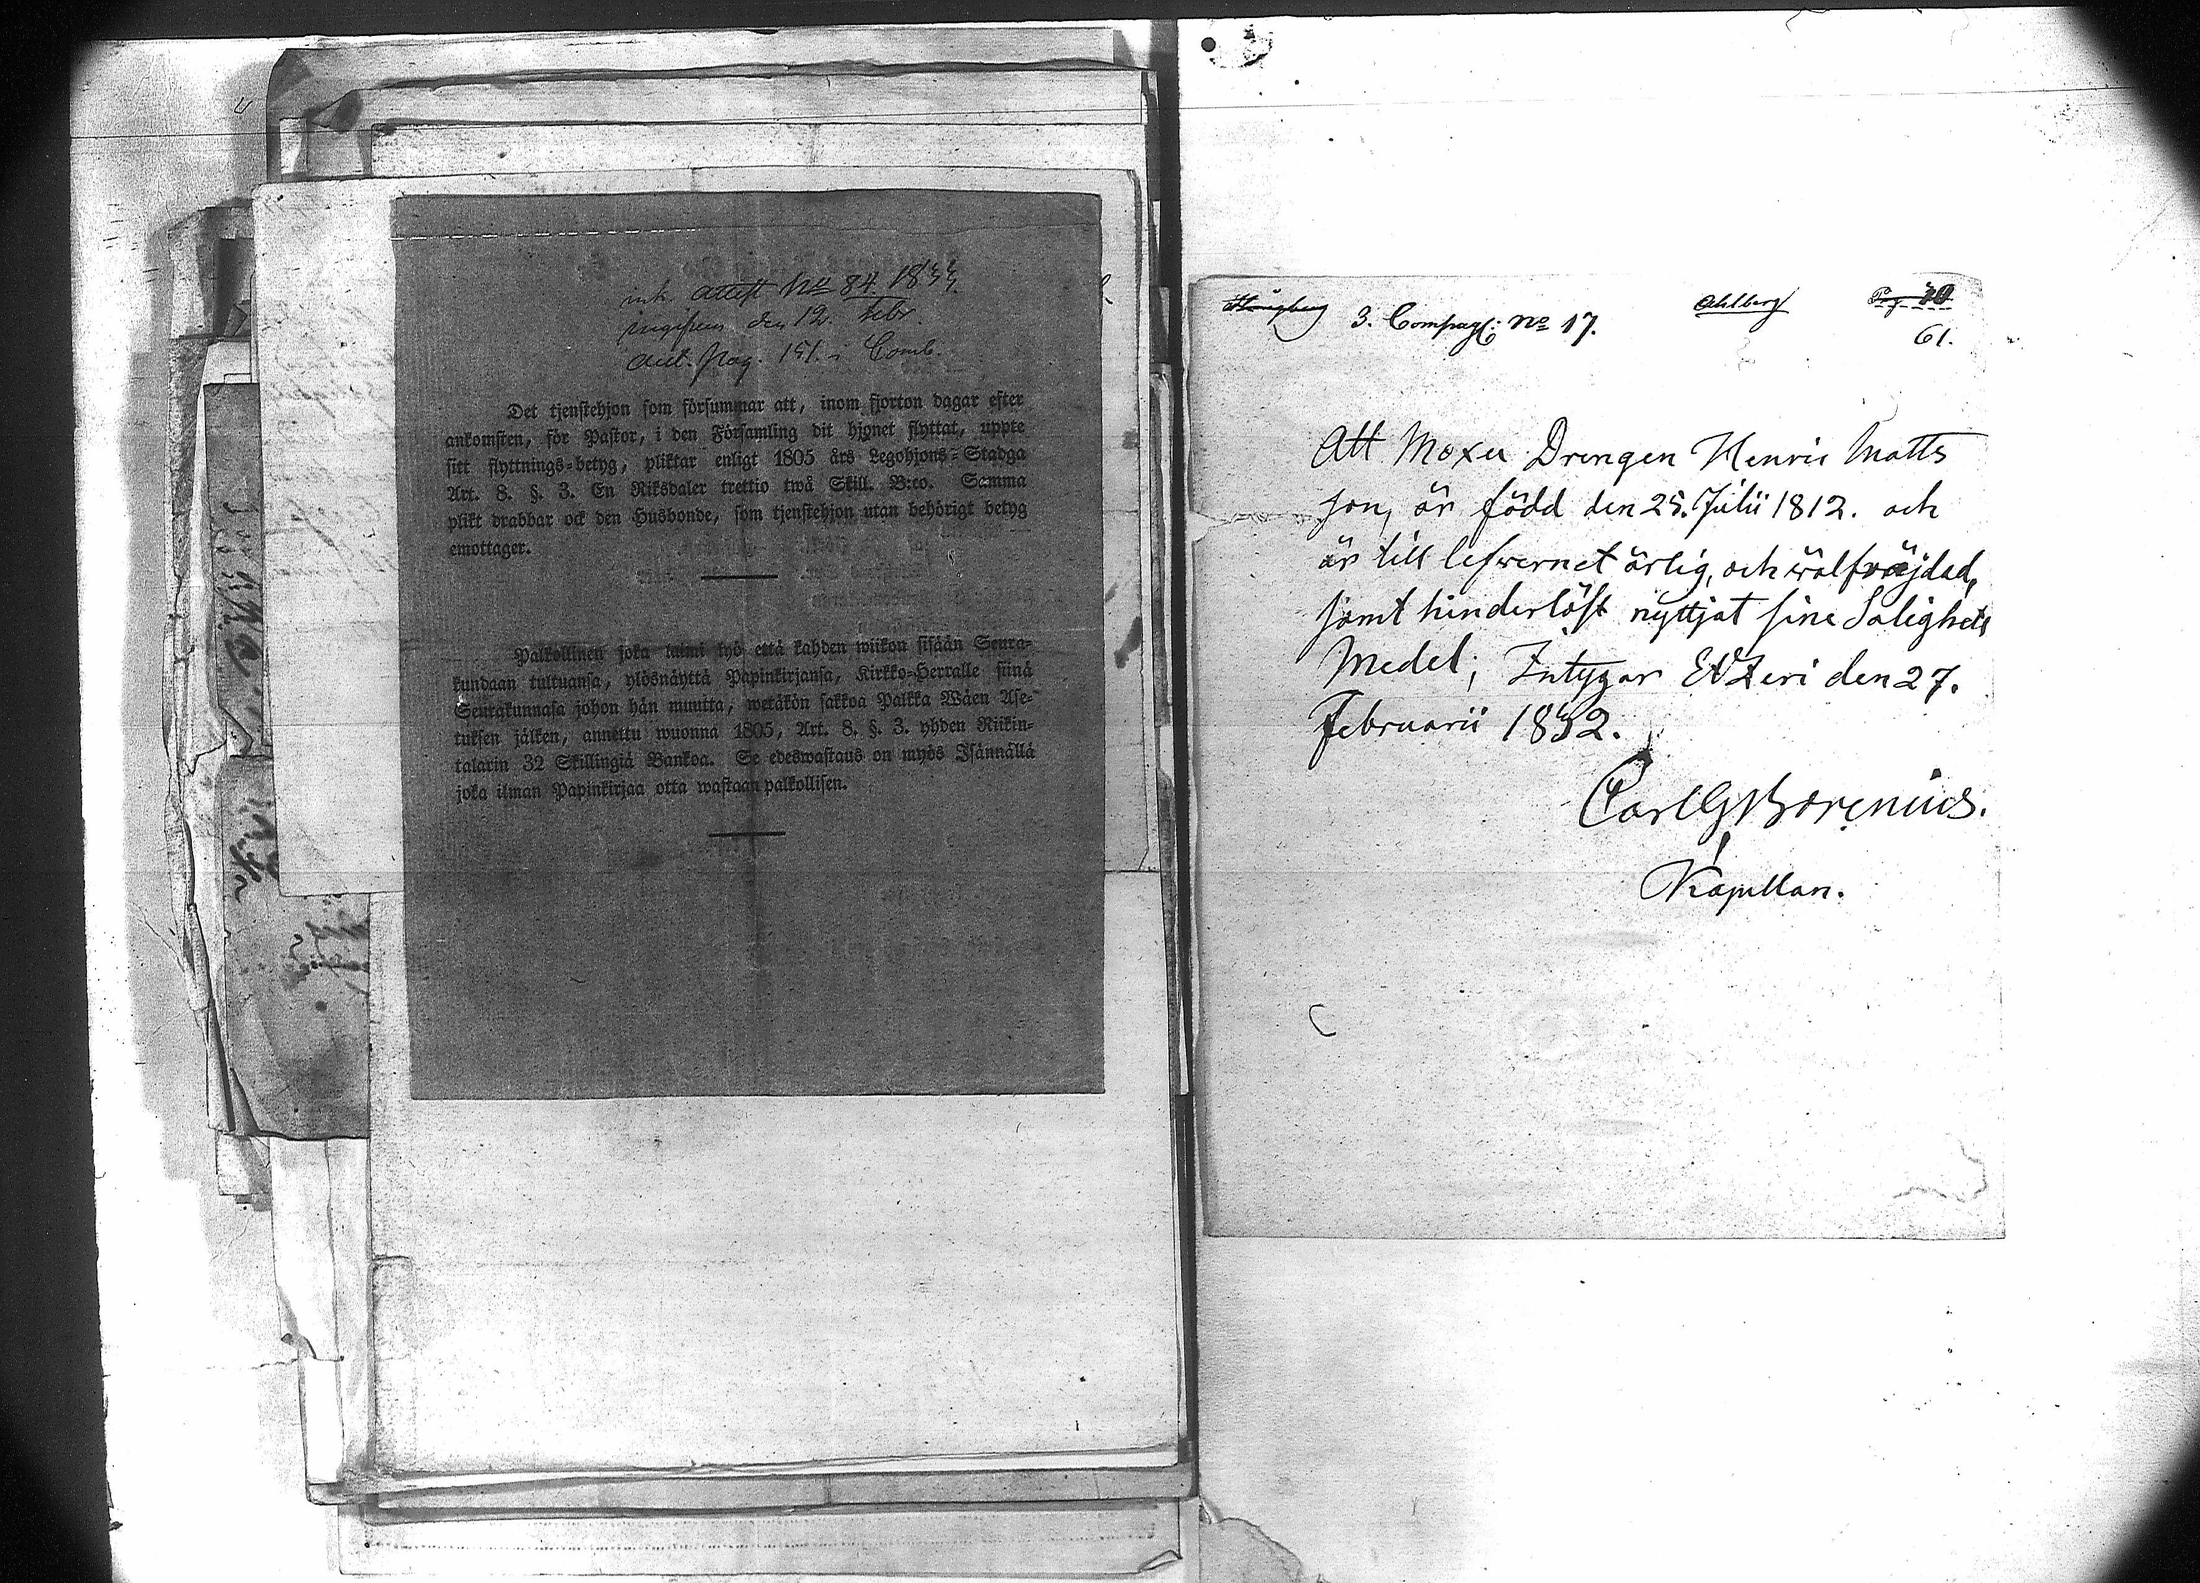 ink. attest No 84. 1833.
ingifven den 12. Febr.
ant. pag. 151. i Comb.
Det tjenstehjon som försummar att, inom fjorton dagar efter
ankomsten, för Pastor, i den Församling dit hjonet flyttat, uppte
sitt flyttnings-betyg, pliktar enligt 1805 års Legohjons-Stadga
Art. 8. §. 3. En Riksdaler trettio twå Skill. B:co. Samma
plikt drabbar ock den Husbonde, som tjenstehjon utan behörigt betyg
emottager.
Palkollinen joka laimi lyö että kahden wiikon sisään Seura-
kundaan tultuansa, ylösnäyttä Papinkirjansa, Kirkko-Herralle siinä
Seurakunnasa johon hän muutta, wetäkön sakkoa Palkka Wäen Ase-
tuksen jälken, annettu wuonna 1805, Art. 8. §. 3. yhden Riikin-
talarin 32 Skillingiä Bankoa. Se edeswastaus on myös Isännällä
joka ilman Papinkirjaa otta wastaan palkollisen.
3. Compag: No 17.
Ahlberg
Pag. 70
61.
Att Moxu Drengen Henric Matts
son, är född den 25. Julii 1812. och
är till lefwernet ärlig, och wälfräjdad,
samt hinderlöst nyttjat sine Salighets
Medel; Intygar den 27.
Februarii 1832.
Carl G Borenius.
Kapellan.